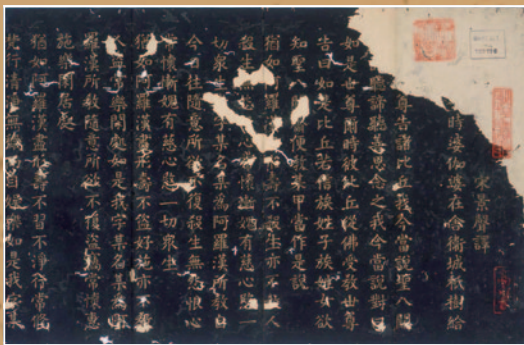 宋 景聲譯
時婆伽婆在舍衛城祇樹給
尊告諸比丘我今當說聖八關
聽諦聽善思念之我今當說對曰
如是世尊爾時彼比丘從佛受教世尊
告曰如是比丘若信族姓子族姓女欲
知聖八 便 某甲當作是說
猶如阿羅 壽不殺生亦不 人
殺生 心 懷慚愧有慈心愍一
切眾生 字某名某為阿羅漢所教自
今已往隨意所欲 復殺生無怨恨心
常懷慚愧有慈心愍一切眾生
猶如阿羅漢盡形壽不盜好施亦不教
人 常樂閑處如是我字某名某為阿
羅漢所教隨意所欲不復盜竊常懷惠
施樂閑居處
猶如阿羅漢盡形壽不習不淨行常修
梵行清淨無穢而自娛樂如是我字某